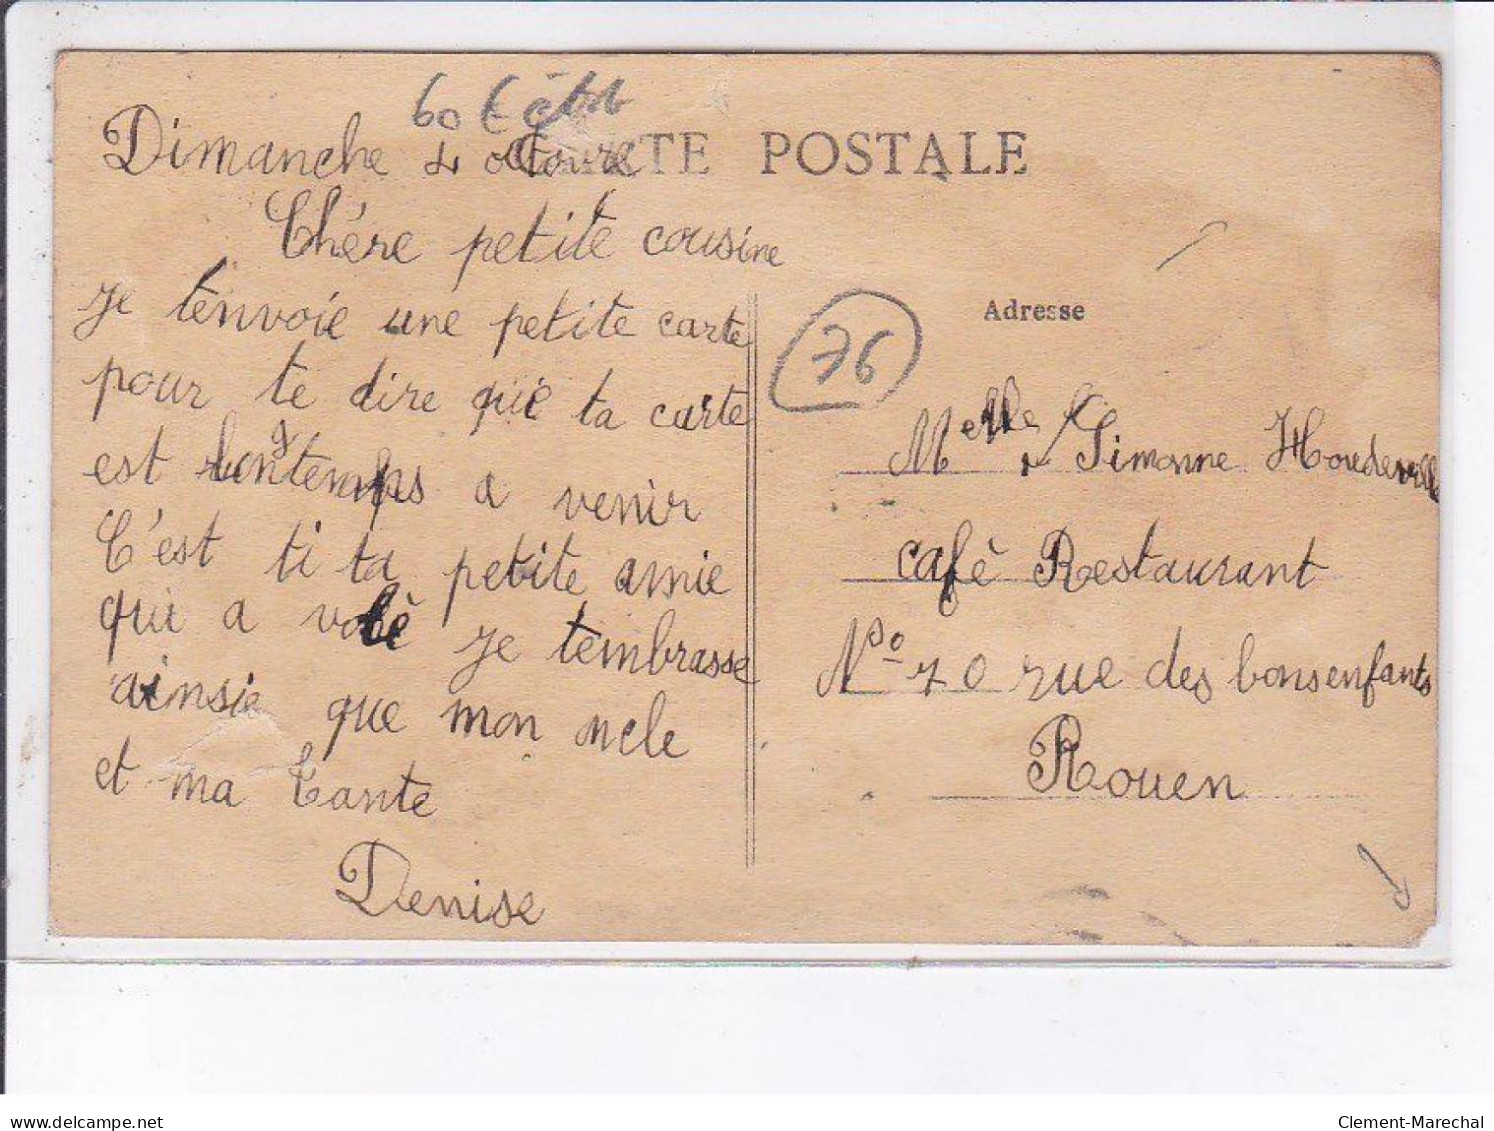 60 €
Dimanche 4 octovre
CARTE POSTALE
Chére petite cousine
je t'envoie une petite carte
pour te dire que ta carte
est longtemps a venir
C'est ti ta petite amie
qui a volé je t'embrasse
ainsie que mon oncle
et ma tante
Denise
76
Adresse
Melle Simonne Houdeville
cafè Restaurant
No 70 rue des bonsenfants
Rouen
delcampe.net
Clement-Marechal